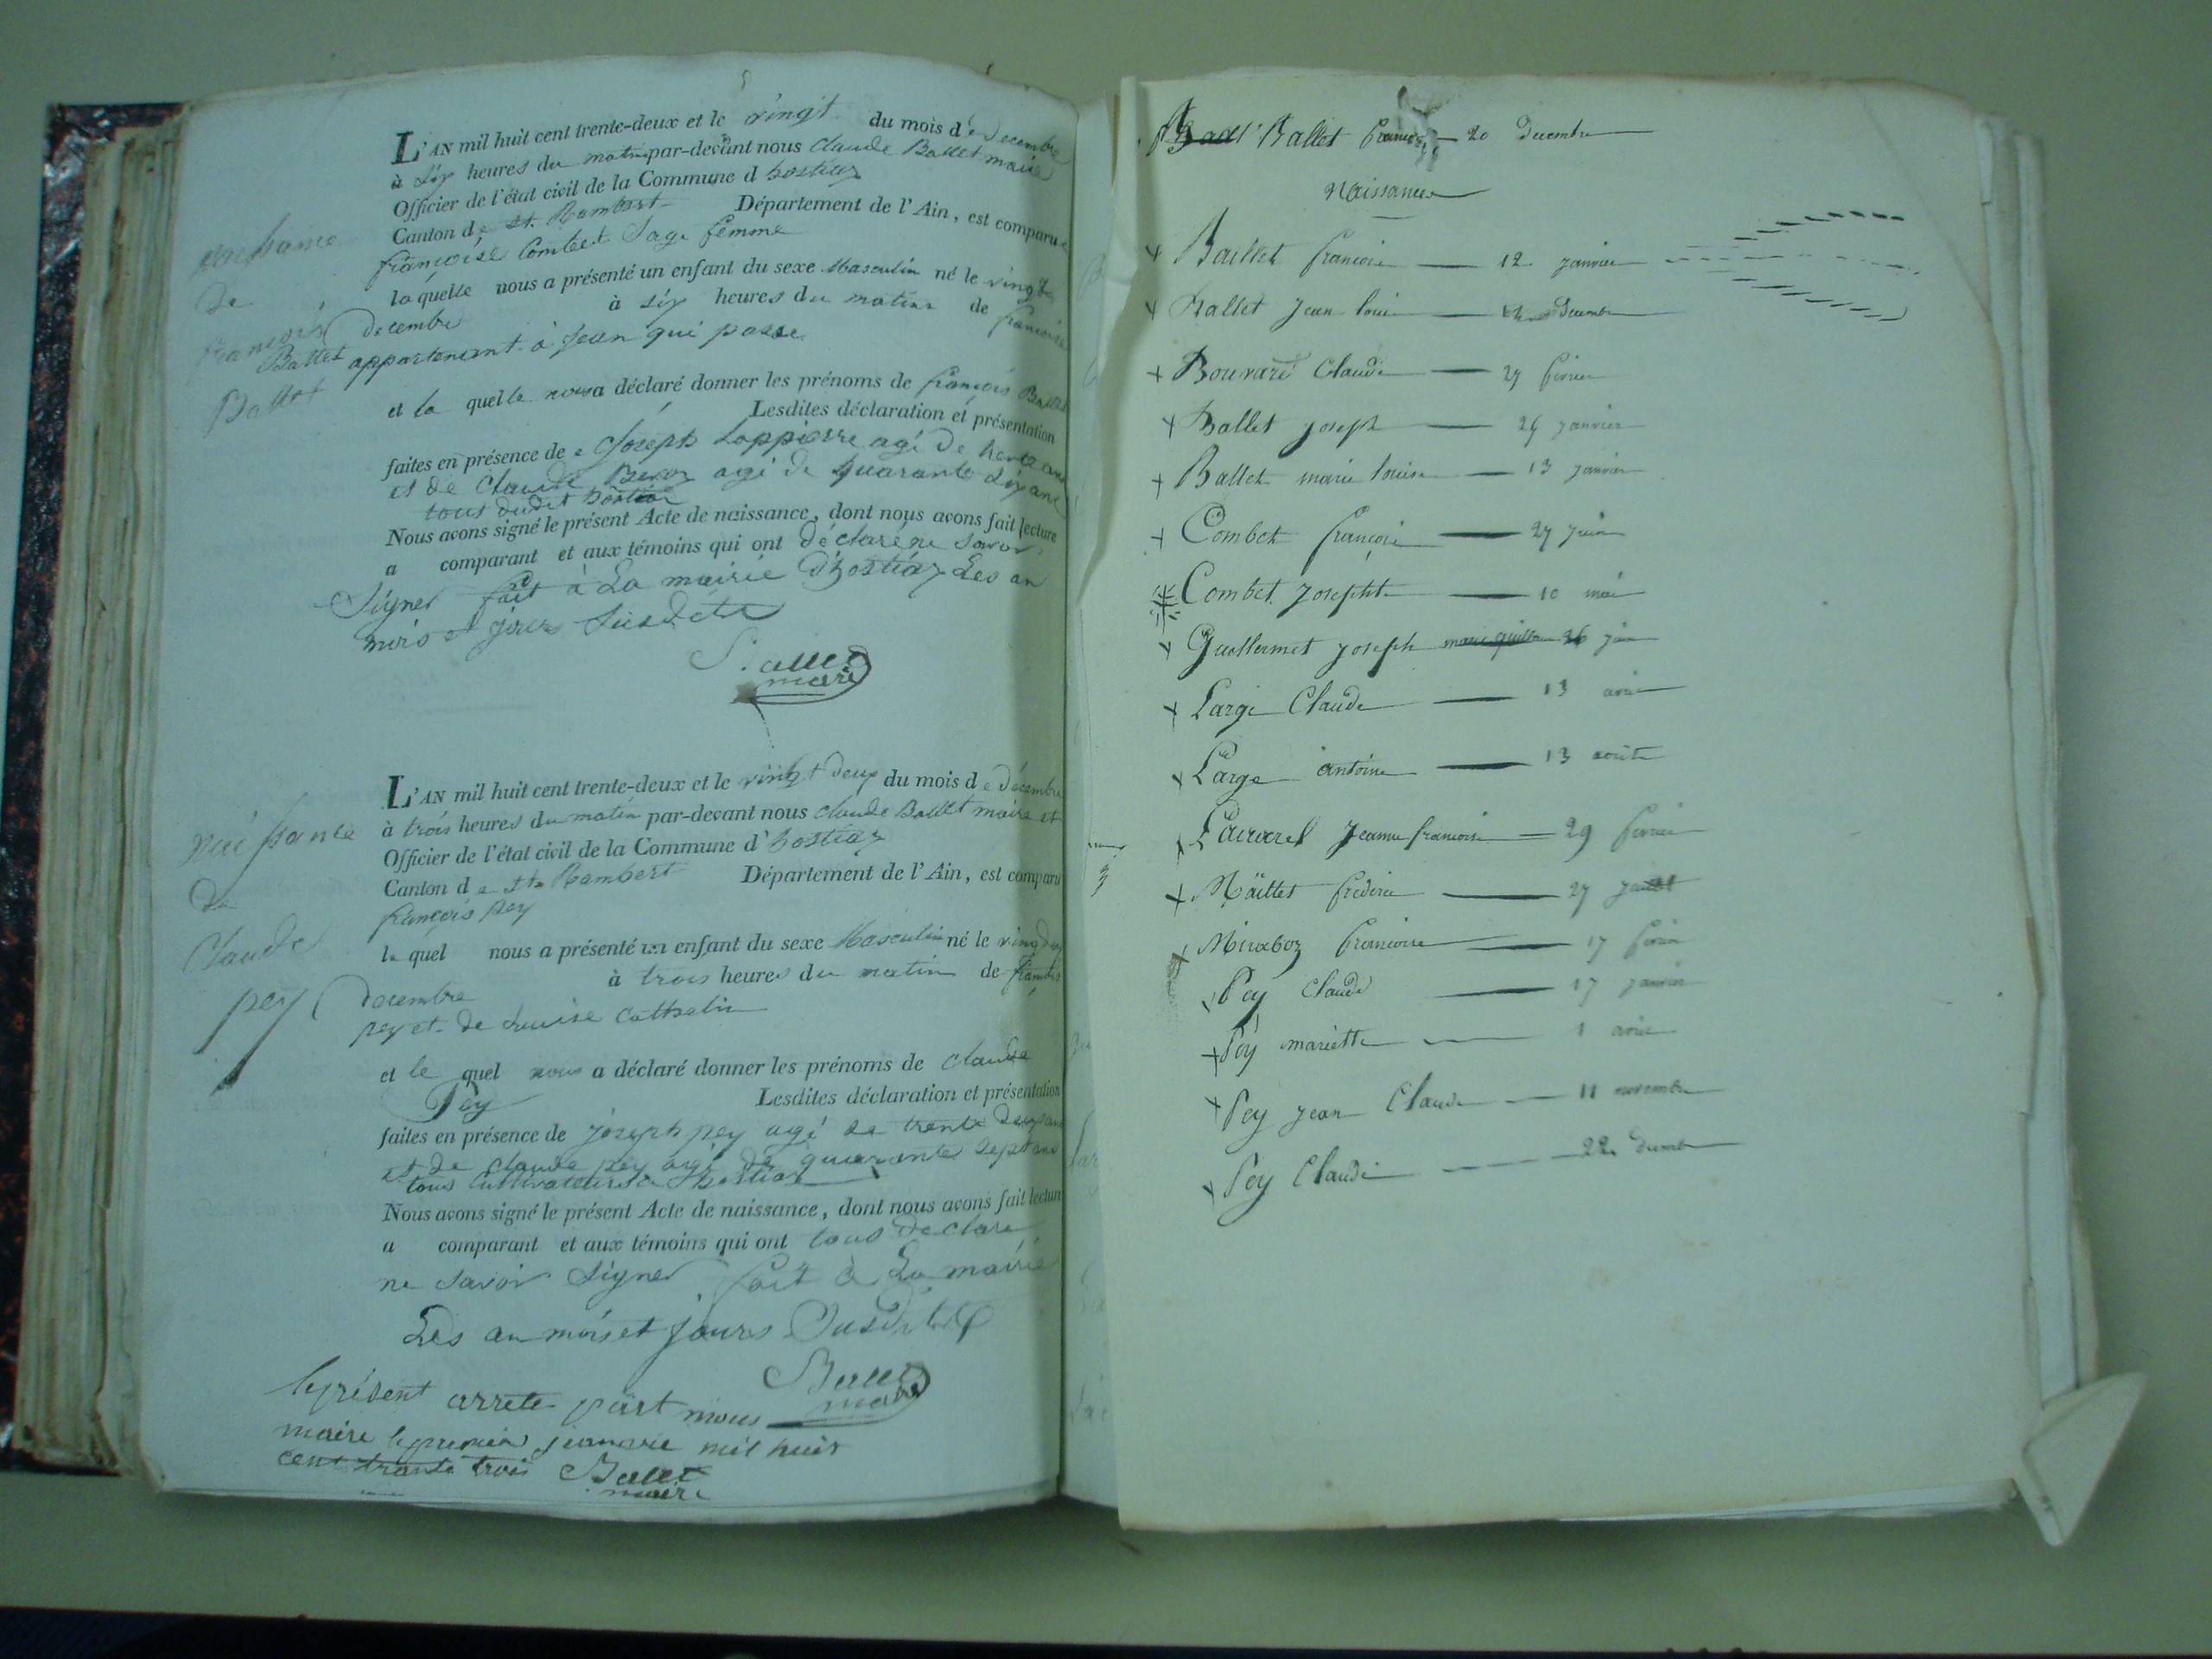 L'AN mil huit cent trente-deux et le vingt du mois de decembre
à six heures du matin par-devant nous Claude Ballet maire
Officier de l'état civil de la Commune d hostiaz
Canton de St. Rambert Département de l'Ain, est comparue
françoise Combet Sage femme
laquelle nous a présenté un enfant du sexe Masculin né le vingt
decembre à six heures du matin de françoise
Ballet appartenant à Jean qui passe
et la quelle nous a déclaré donner les prénoms de françois Ballet
Lesdites déclaration et présentation
faites en présence de Joseph Lappierre agé de trente ans
et de Claude agé de quarante six ans
tous dudit hostiaz
Nous avons signé le présent Acte de naissance, dont nous avons fait lecture
a comparant et aux témoins qui ont déclaré ne savoir
Signer fait à La mairie D'hostiaz Les an
mois et jours Susdits
Ballet
maire
naissance
de
françois
Ballet
L'AN mil huit cent trente-deux et le vingt deux du mois de décembre
à trois heures du matin par-devant nous Claude Ballet maire et
Officier de l'état civil de la Commune d'hostiaz
Canton de St. Rambert Département de l'Ain, est comparu
françois pey
le quel nous a présenté un enfant du sexe Masculin né le vingt deux
decembre à trois heures du matin de françois
pey et de Louise Cathelin
et le quel nous a déclaré donner les prénoms de Claude
Pey Lesdites déclaration et présentation
faites en présence de joseph pey agé de trente deux ans
et de Claude pey agé de quarante sept ans
tous Cultivateurs à hostiaz
Nous avons signé le présent Acte de naissance, dont nous avons fait lecture
a comparant et aux témoins qui ont tous declaré
ne savoir Signer fait à La mairie
Les an mois et jours Susdits
Ballet
maire
naissance
de
Claude
pey
le présent arrete part nous
maire le premier janvie mil huit
cent trante trois Ballet
maire
Ballet françois 20 Decembre
Naissances
Ballet françoise 12 janvier
Ballet Jean louis Decembre
Bouvard Claude 27 fevrier
Ballet joseph 26 janvier
Ballet marie louise 13 janvier
Combet françoise 27 juin
Combet Josepht 10 mai
Guillermet joseph 26 juin
Large Claude 13 avril
Large antoine 13 août
Jeanne francoise 29 fevrier
Maillet frederic 27
Miraboz francoise 17 fevrier
Pey Claude 17 janvier
Pey mariette 1 avril
Pey Jean Claude 11 novembre
Pey Claude 22 Decembre